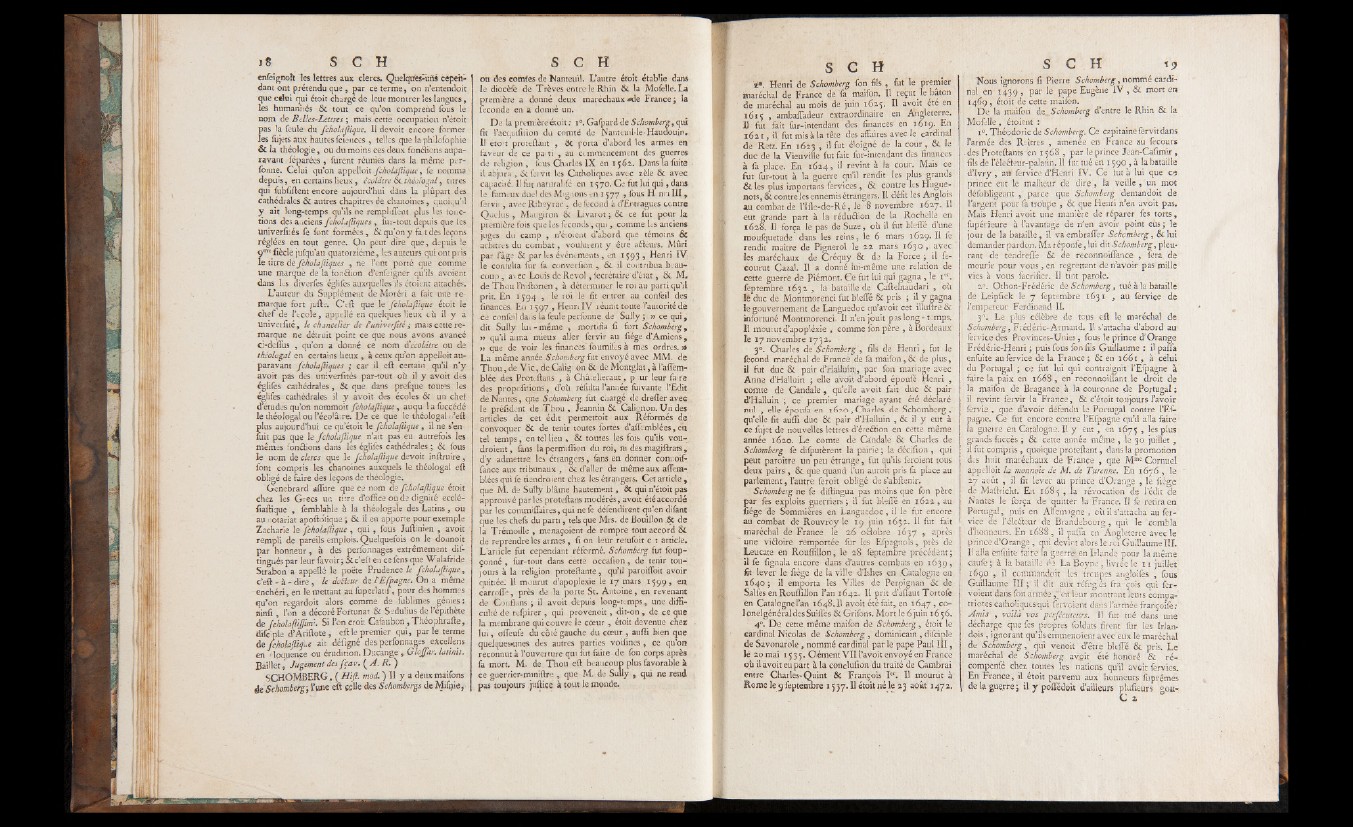 18 S C H S C H
enseignoit les lettres aux clercs. Quelques-uns cepen-
dant ont prétendu que, par ce terme, on n'entendoit
que celui qui étoit chargé de leur montrer les langues,
les humanités & tout ce qu'on comprend sous le
nom de Belles-Lettres; mais cette occupation n'étoit
pas la seule du scholastique. Il devoit encore former
les sujets aux hautes sciences, telles que la philosophie
& la théologie, ou du moins ces deux fonctions aupa-
ravant séparées, furent réunies dans la même per-
sonne. Celui qu'on appelloit scholastique, se nomma
depuis, en certains lieux, écolâtre & théologal, titres
qui subsistent encore aujourd'hui dans la plûpart des
cathédrales & autres chapitres de chanoines, quoiqu'il
y ait long-temps qu'ils ne remplissent plus les fonc-
tions des anciens scholastiques, sur-tout depuis que les
universités se sont formées, & qu'on y fait des leçons
réglées en tout genre. On peut dire que, depuis le
9me siècle jusqu'au quatorzième, les auteurs qui ont pris
le titre de scholastiques, ne l'ont porté que comme
une marque de la fonction d'enseigner qu'ils avoient
dans les diverses églises auxquelles ils étoient attachés.
L'auteur du Supplément de Moréri a fait une re-
marque fort juste. C'est que le scholastique étoit le
chef de l'école, appellé en quelques lieux où il y a
université, le chancelier de l'université; mais cette re-
marque ne détruit point ce que nous avons avancé
ci-dessus, qu'on a donné ce nom d'écolâtre ou de
théologal en certains lieux, à ceux qu'on appelloit au-
paravant scholastiques; car il est certain qu'il n'y
avoit pas des universités par-tout où il y avoit des
églises cathédrales, & que dans presque toutes les
églises cathédrales il y avoit des écoles & un chef
d'études qu'on nommoit scholastique, auquel a succédé
le théologal ou l'écolâtre. De ce que le théologal n'est
plus aujourd'hui ce qu'étoit le scholastique, il ne s'en-
suit pas que le scholastique n'ait pas eu autrefois les
mêmes fonctions dans les églises cathédrales; & sous
le nom de clercs que le scholastique devoit instruire,
sont compris les chanoines auxquels le théologal est
obligé de faire des leçons de théologie.
Genebrard assure que ce nom de scholastique étoit
chez les Grecs un titre d'office ou de dignité ecclé-
siastique, semblable à la théologale des Latins, ou
au notariat apostolique; & il en apporte pour exemple
Zacharie le scholastique, qui, sous Justinien, avoit
rempli de pareils emplois. Quelquefois on le donnoit
par honneur, à des personnages extrêmement dis-
tingués par leur savoir; & c'est en ce sens que Walafride
Strabon a appellé le poëte Prudence le scholastique,
c'est-à-dire, le docteur de l'Espagne. On a même
enchéri, en le mettant au superlatif, pour des hommes
qu'on regardoit alors comme de sublimes génies:
ainsi, l'on a décoré Fortunat & Sedulius de l'épithète
de scholastissimi. Si l'on croit Casaubon, Théophraste,
disciple d'Aristote, est le premier qui, par le terme
de scholastique ait désigné des personnages excellens
en éloquence ou érudition. Ducange, Glossar. latinit.
Baillet, Jugement des sçav. (A. R.)
SCHOMBERG, (Hist. mod.) Il y a deux maisons
de Schomberg; l'une est celle des Schombergs de Misnie,
ou des comtes de Nanteuil. L'autre étoit établie dans
le diocèse de Trèves entre le Rhin & la Moselle. La
première a donné deux maréchaux de France; la
seconde en a donné un.
De la première étoit: 1°. Gaspard de Schomberg, qui
fit l'acquisition du comté de Nanteuil-le-Haudouin.
Il étoit protestant, & porta d'abord les armes en
faveur de ce parti, au commencement des guerres
de religion, sous Charles IX en 1562. Dans la suite
il abjura, & servit les Catholiques avec zèle & avec
capacité. Il fut naturalisé en 1570. Ce fut lui qui, dans
le fameux duel des Mignons en 1577, sous Henri III,
servit, avec Ribeyrac, de second à d'Entragues contre
Quelus, Maugiron & Livarot; & ce fut pour la
première fois que les seconds, qui, comme les anciens
juges du camp, n'étoient d'abord que témoins &
arbitres du combat, voulurent y être acteurs. Mûri
par l'âge & par les événements, en 1593, Henri IV
le consulta sur sa conversion, & il contribua beau-
coup, avec Louis de Revol, secretaire d'état, & M.
de Thou l'historien, à déterminer le roi au parti qu'il
prit. En 1594, le roi le fit entrer au conseil des
finances. En 1597, Henri IV réunit toute l'autorité de
ce conseil dans la seule personne de Sully; » ce qui,
dit Sully lui-même, mortifia si fort Schomberg,
» qu'il aima mieux aller servir au siége d'Amiens,
» que de voir les finances soumises à mes ordres. »
La même année Schomberg fut envoyé avec MM. de
Thou, de Vic, de Calignon & de Montglat, à l'assem-
blée des Protestans, à Châtelleraut, pour leur faire
des propositions, d'où résulta l'année suivante l'Edit
de Nantes, que Schomberg fut chargé de dresser avec
le président de Thou, Jeannin & Calignon. Un des
articles de cet édit permettoit aux Réformés de
convoquer & de tenir toutes sortes d'assemblées, en
tel temps, en tel lieu, & toutes les fois qu'ils vou-
droient, sans la permission du roi, ni des magistrats,
d'y admettre les étrangers, sans en donner connois-
sance aux tribunaux, & d'aller de même aux assem-
blées qui se tiendroient chez les étrangers. Cet article,
que M. de Sully blâme hautement, & qui n'étoit pas
approuvé par les protestans modérés, avoit été accordé
par les commissaires, qui ne se défendirent qu'en disant
que les chefs du parti, tels que Mrs. de Bouillon & de
la Trémoille, menaçoient de rompre tout accord &
de reprendre les armes, si on leur refusoit cet article.
L'article fut cependant réformé. Schomberg fut soup-
çonné, sur-tout dans cette occasion, de tenir tou-
jours à la religion protestante, qu'il paroissoit avoir
quittée. Il mourut d'apoplexie le 17 mars 1599, en
carrosse, près de la porte St. Antoine, en revenant
de Conflans; il avoit depuis long-temps, une diffi-
culté de respirer, qui provenoit, dit-on, de ce que
la membrane qui couvre le cœur, étoit devenue chez
lui, osseuse du côté gauche du cœur, aussi bien que
quelques-unes des autres parties voisines, ce qu'on
reconnut à l'ouverture qui fut faite de son corps après
sa mort. M. de Thou est beaucoup plus favorable à
ce guerrier-ministre, que M. de Sully, qui ne rend
pas toujours justice à tout le monde.
S C H S C H 19
2°. Henri de Schomberg son fils, fut le premier
maréchal de France de sa maison. Il reçut le bâton
de maréchal au mois de juin 1625. Il avoit été en
1615, ambassadeur extraordinaire en Angleterre.
Il fut fait sur-intendant des finances en 1619. En
1621, il fut mis à la tête des affaires avec le cardinal
de Retz. En 1623, il fut éloigné de la cour, & le
duc de la Vieuville fut fait sur-intendant des finances
à sa place. En 1624, il revint à la cour. Mais ce
fut sur-tout à la guerre qu'il rendit les plus grands
& les plus importans services, & contre les Hugue-
nots, & contre les ennemis étrangers. Il défit les Anglois
au combat de l'Isle-de-Ré, le 8 novembre 1627. Il
eut grande part à la réduction de la Rochelle en
1628. Il força le pas de Suze, où il fut blessé d'une
mousquetade dans les reins, le 6 mars 1629. Il se
rendit maître de Pignerol le 22 mars 1630, avec
les maréchaux de Créquy & de la Force, il se-
courut Cazal. Il a donné lui-même une relation de
cette guerre de Piémont. Ce fut lui qui gagna, le 1er.
septembre 1632, la bataille de Castelnaudari, où
le duc de Montmorenci fut blessé & pris; il y gagna
le gouvernement de Languedoc qu'avoit cet illustre &
infortuné Montmorenci. Il n'en jouit pas long-temps.
Il mourut d'apoplexie, comme son père, à Bordeaux
le 17 novembre 1732.
3°. Charles de Schomberg, fils de Henri, fut le
second maréchal de France de sa maison, & de plus,
il fut duc & pair d'Halluin, par son mariage avec
Anne d'Halluin; elle avoit d'abord épousé Henri,
comte de Candale, qu'elle avoit fait duc & pair
d'Halluin; ce premier mariage ayant été déclaré
nul, elle épousa en 1620, Charles de Schomberg,
qu'elle fit aussi duc & pair d'Halluin, & il y eut à
ce sujet de nouvelles lettres d'érection en cette même
année 1620. Le comte de Candale & Charles de
Schomberg se disputèrent la pairie; la décision, qui
peut paroître un peu étrange, fut qu'ils seroient tous
deux pairs, & que quand l'un auroit pris sa place au
parlement, l'autre seroit obligé de s'abstenir.
Schomberg ne se distingua pas moins que son père
par ses exploits guerriers; il fut blessé en 1622, au
siége de Sommières en Languedoc, il le fut encore
au combat de Rouvroy le 19 juin 1632. Il fut fait
maréchal de France le 26 octobre 1637, après
une victoire remportée sur les Espagnols, près de
Leucate en Roussillon, le 28 septembre précédent;
il se signala encore dans d'autres combats en 1639,
fit lever le siége de la ville d'Isles en Catalogne en
1640; il emporta les Villes de Perpignan & de
Salses en Roussillon l'an 1642. Il prit d'assaut Tortose
en Catalogne l'an 1648. Il avoit été fait, en 1647, co-
lonel général des Suisses & Grisons. Mort le 6 juin 1656.
4°. De cette même maison de Schomberg, étoit le
cardinal Nicolas de Schomberg, dominicain, disciple
de Savonarole, nommé cardinal par le pape Paul III,
le 20 mai 1535. Clément VII l'avoit envoyé en France
où il avoit eu part à la conclusion du traité de Cambrai
entre Charles-Quint & François Ier. Il mourut à
Rome le 9 septembre 1537. Il étoit né le 23 août 1472.
Nous ignorons si Pierre Schomberg, nommé cardi-
nal en 1439, par le pape Eugène IV, & mort en
1469, étoit de cette maison.
De la maison de Schomberg d'entre le Rhin & la
Moselle, étoient:
1°. Théodoric de Schomberg. Ce capitaine servit dans
l'armée des Reîtres, amenée en France au secours
des Protestans en 1568, par le prince Jean-Casimir,
fils de l'électeur-palatin. Il fut tué en 1590, à la bataille
d'Ivry, au service d'Henri IV. Ce fut à lui que ce
prince eut le malheur de dire, la veille, un mot
désobligeant, parce que Schomberg demandoit de
l'argent pour sa troupe, & que Henri n'en avoit pas.
Mais Henri avoit une manière de réparer ses torts,
supérieure à l'avantage de n'en avoir point eus; le
jour de la bataille, il va embrasser Schomberg, & lui
demander pardon. Ma réponse, lui dit Schomberg, pleu-
rant de tendresse & de reconnoissance, sera de
mourir pour vous, en regrettant de n'avoir pas mille
vies à vous sacrifier. Il tint parole.
2°. Othon-Frédéric de Schomberg, tué à la bataille
de Leipsick le 7 septembre 1631, au service de
l'empereur Ferdinand II.
3°. Le plus célèbre de tous est le maréchal de
Schomberg, Frédéric-Armand. Il s'attacha d'abord au
service des Provinces-Unies, sous le prince d'Orange
Frédéric-Henri; puis sous son fils Guillaume: il passa
ensuite au service de la France; & en 1661, à celui
du Portugal; ce fut lui qui contraignit l'Espagne à
faire la paix en 1668, en reconnoissant le droit de
la maison de Bragance à la couronne de Portugal;
il revint servir la France, & c'étoit toujours l'avoir
servie, que d'avoir défendu le Portugal contre l'Es-
pagne. Ce fut encore contre l'Espagne qu'il alla faire
la guerre en Catalogne. Il y eut, en 1675, les plus
grands succès; & cette année même, le 30 juillet,
il fut compris, quoique protestant, dans la promotion
des huit maréchaux de France, que Mme Cornuel
appelloit la monnoie de M. de Turenne. En 1676, le
27 août, il fit lever au prince d'Orange, le siége
de Mastricht. En 1685, la révocation de l'édit de
Nantes le força de quitter la France. Il se retira en
Portugal, puis en Allemagne, où il s'attacha au ser-
vice de l'électeur de Brandebourg, qui le combla
d'honneurs. En 1688, il passa en Angleterre avec le
prince d'Orange, qui devint alors le roi Guillaume III.
Il alla ensuite faire la guerre en Irlande pour la même
cause; à la bataille de La Boyne, livrée le 11 juillet
1690, il commandoit les troupes angloises, sous
Guillaume III; il dit aux réfugiés françois qui ser-
voient dans son armée, en leur montrant leurs compa-
triotes catholiques qui servoient dans l'armée françoise:
Mess., voilà vos persécuteurs. Il fut tué dans une
décharge que ses propres soldats firent sur les Irlan-
dois, ignorant qu'ils emmenoient avec eux le maréchal
de Schomberg, qui venoit d'être blessé & pris. Le
maréchal de Schomberg avoit été honoré & ré-
compensé chez toutes les nations qu'il avoit servies.
En France, il étoit parvenu aux honneurs suprêmes
de la guerre; il y possédoit d'ailleurs plusieurs gou-
C 2